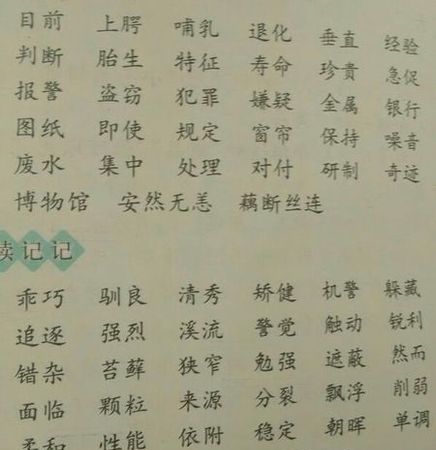 目前 上腭 哺乳 退化 垂直 经验
判断 胎生 特征 寿命 珍贵 急促
报警 盗窃 犯罪 嫌疑 金属 银行
图纸 即使 规定 窗帘 保持 噪音
废水 集中 处理 对付 研制 奇迹
博物馆 安然无恙 藕断丝连
读记记
乖巧 驯良 清秀 矫健 机警 躲藏
追逐 强烈 溪流 警觉 触动 锐利
错杂 苔藓 狭窄 勉强 遮蔽 然而
面临 颗粒 来源 分裂 飘浮 削弱
柔和 性能 依附 稳定 朝晖 单调